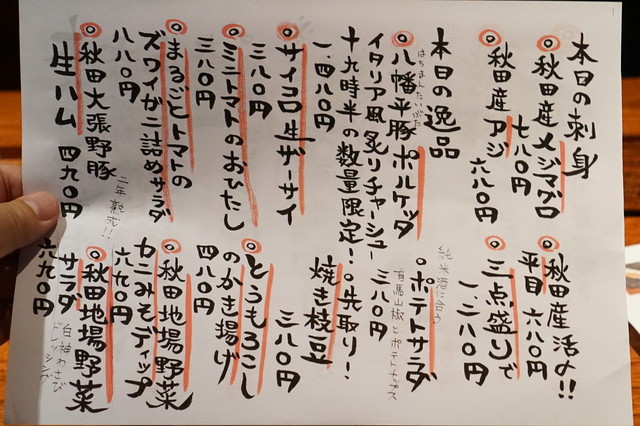 本日の刺身
秋田産メジマグロ
七八〇円
秋田産アジ
六八〇円
秋田産活〆!!
平目 六八〇円
三点盛りで
一、二八〇円
本日の逸品
はちまんたいぶた
八幡平豚ポルケッタ
イタリア風炙りチャーシュー
十九時半の数量限定!
一、四八〇円
純米酒に合う
ポテトサラダ
有馬山椒とポテトチップス
三八〇円
先取り!
焼き枝豆
三八〇円
サイコロ生ザーサイ
三八〇円
ミニトマトのおひたし
三八〇円
とうもろこし
のかき揚げ
四八〇円
まるごとトマトの
ズワイガニ詰めサラダ
八八〇円
秋田地場野菜
カニみそディップ
六九〇円
秋田大張野豚
二年熟成!!
生ハム 四九〇円
秋田地場野菜
サラダ
白神わさび
ドレッシング
六九〇円